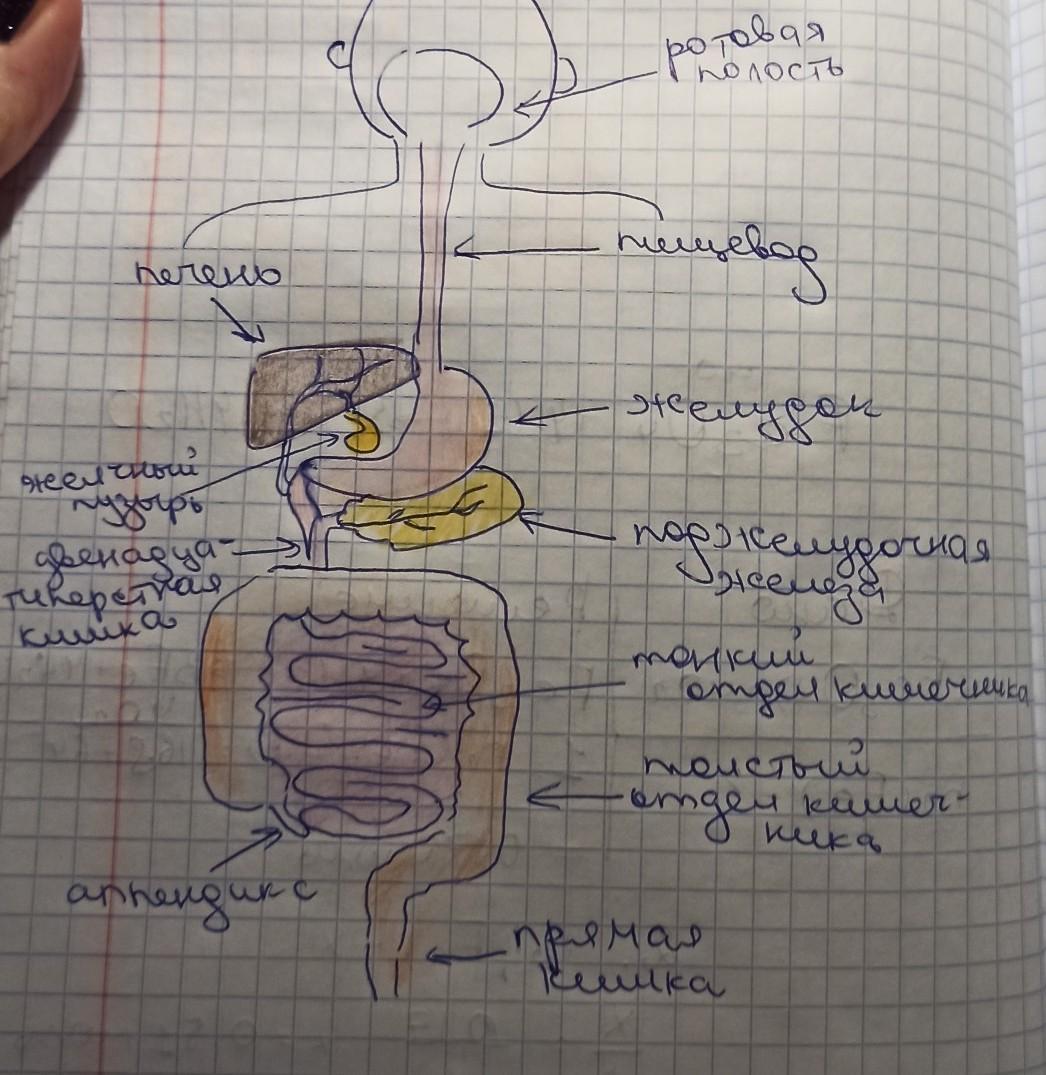 ротовая
полость
пищевод
печень
желудок
желчный
пузырь
поджелудочная
железа
двенадца-
типерстная
кишка
тонкий
отдел кишечника
толстый
отдел кишеч-
ника
аппендикс
прямая
кишка